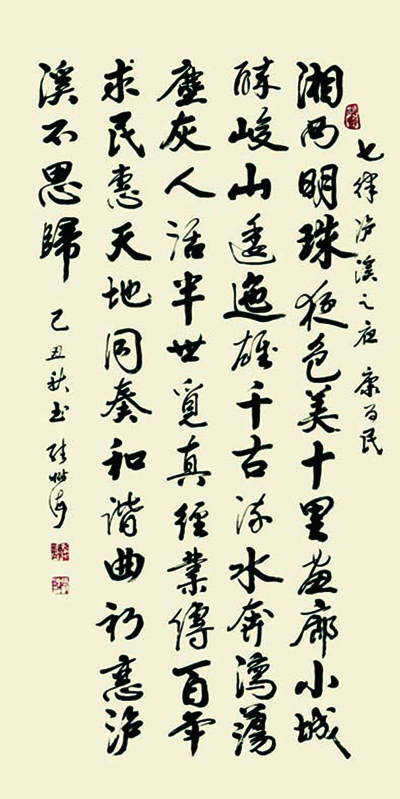 七律泸溪之夜 康为民
湘西明珠夜色美十里画廊小城
醉峻山逶迤雄千古流水奔瀉蕩
塵灰人活半世覓真經業傳百年
求民惠天地同奏和谐曲初恋泸
溪不思歸 己丑秋书